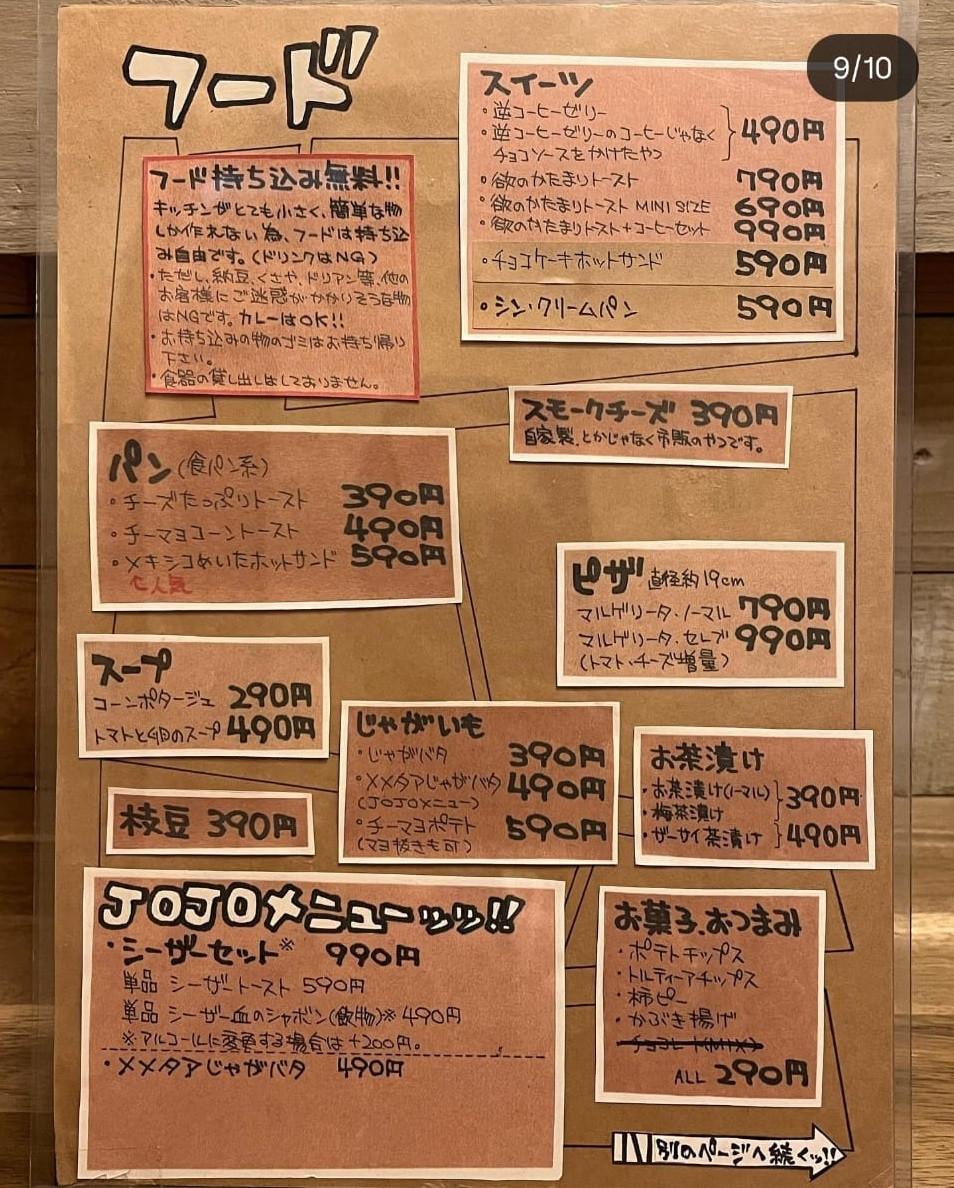 フード
9/10
フード持ち込み無料!!
キッチンがとても小さく、簡単な物
しか作れない為、フードは持ち込
み自由です。(ドリンクはNG)
・ただし、納豆、くさや、ドリアン等、他の
お客様にご迷惑がかかりそうな物
はNGです。カレーはOK!!
・お持ち込みの物のゴミはお持ち帰り
下さい。
・食器の貸し出しはしておりません。
スイーツ
・逆コーヒーゼリー
・逆コーヒーゼリーのコーヒーじゃなく
チョコソースをかけたやつ
490円
・欲のかたまりトースト 790円
・欲のかたまりトースト MINI SIZE 690円
・欲のかたまりトースト+コーヒーセット 990円
・チョコケーキホットサンド 590円
・シン・クリームパン 590円
スモークチーズ 390円
自家製、とかじゃなく市販のやつです。
パン(食パン系)
・チーズたっぷりトースト 390円
・チーマヨコーントースト 490円
・メキシコめいたホットサンド 590円
人気
ピザ 直径約19cm
マルゲリータ・ノーマル 790円
マルゲリータ・セレブ 990円
(トマト・チーズ増量)
スープ
コーンポタージュ 290円
トマトと卵のスープ 490円
じゃがいも
・じゃがバタ 390円
・メメタアじゃがバタ 490円
(JOJOメニュー)
・チーマヨポテト 590円
(マヨ抜きも可)
お茶漬け
・お茶漬け(ノーマル)
・梅茶漬け
390円
・ザーサイ茶漬け 490円
枝豆 390円
JOJOメニューッッ!!
・シーザーセット※ 990円
単品 シーザートースト 590円
単品 シーザー血のシャボン(飲物)※ 490円
※アルコールに変更する場合は+200円。
・メメタアじゃがバタ 490円
お菓子、おつまみ
・ポテトチップス
・トルティーアチップス
・柿ピー
・かぶき揚げ
チョコレート(MIX)
ALL 290円
別のページへ続くッ!!